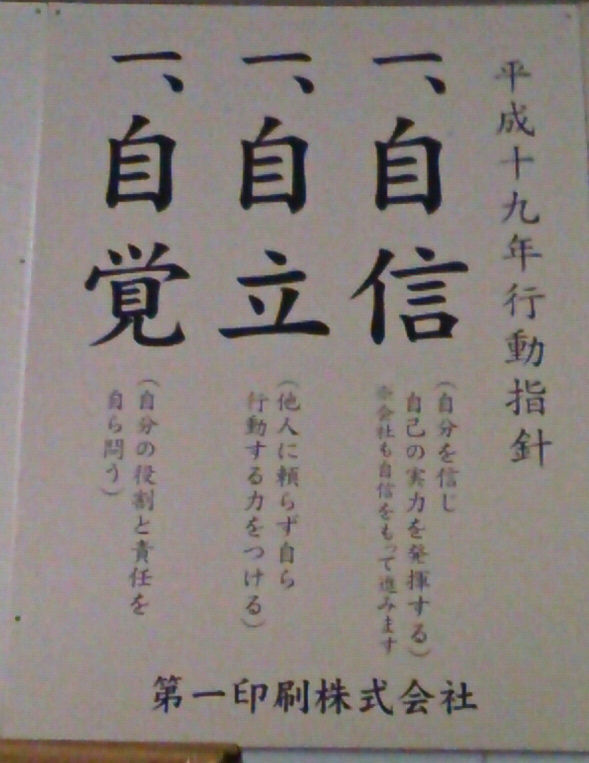 平成十九年行動指針
一、自信
(自分を信じ
自己の実力を発揮する)
※会社も自信をもって進みます
一、自立
(他人に頼らず自ら
行動する力をつける)
一、自覚
(自分の役割と責任を
自ら問う)
第一印刷株式会社